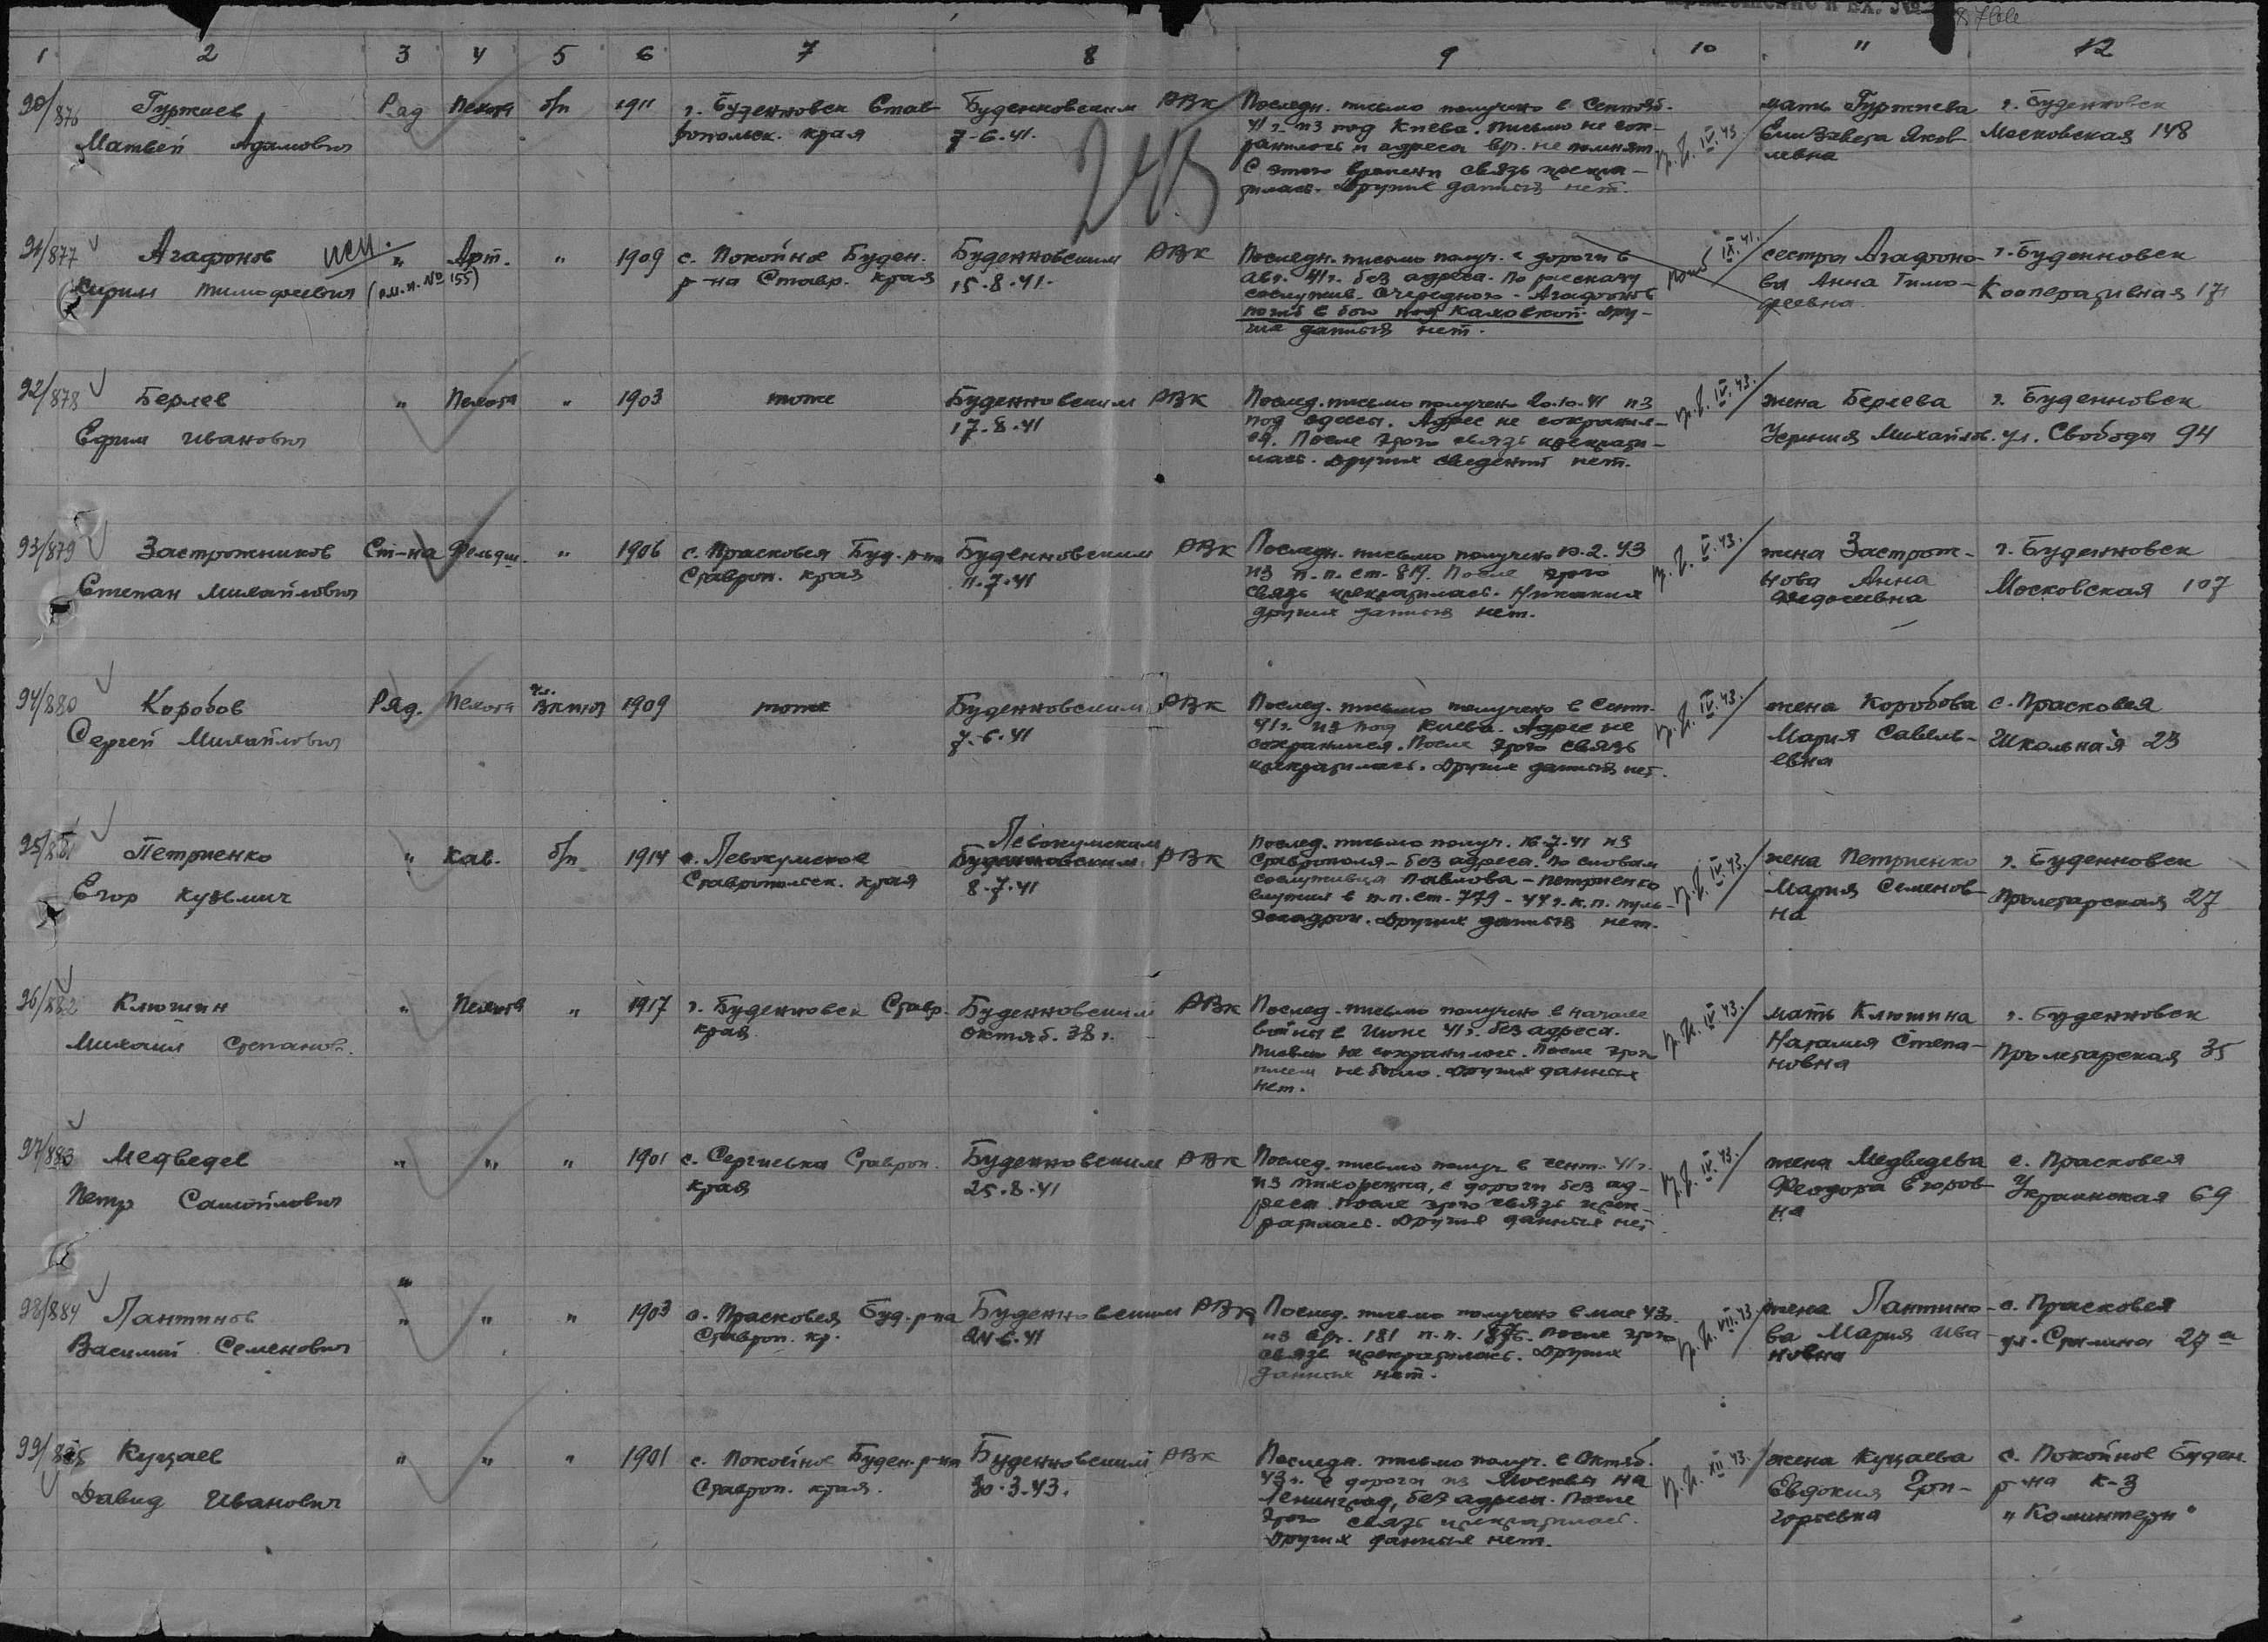 1 2 3 4 5 6 7 8 9 10 11 12
90/876 Гуржиев Ряд Пехота б/п 1911 г. Буденновск Став- Буденновским РВК Последн. письмо получено в Сентяб. мать Гуржиева г. Буденновск
Матвей Адамович ропольск. края 7-6.41. 41 г. из под Киева. Письмо не сох- IV.43. Елизавета Яков- Московская 148
ранилось и адреса вр. не помнят. левна
С этого времени связь прекра-
тилась. Других данных нет.
91/877 Агафонов " Арт. " 1909 с. Покойное Буден. Буденновским РВК Последн. письмо получ. с дороги в IX.41. сестра Агафоно- г. Буденновск
Кирилл Тимофеевич № 155) р-на Ставр. края 15.8.41. авг. 41 г. без адреса. По рассказу ва Анна Тимо- Кооперативная 171
сослужив. Очередного - Агафонов феевна
погиб в бою под Каховкой. Дру-
гих данных нет.
92/878 Берлев " Пехота " 1903 тоже Буденновским РВК Послед. письмо получено 20.10.41 из IV.43. жена Берлева г. Буденновск
Ефим Иванович 17.8.41 под Одессы. Адрес не сохранил- Михайлов. ул. Свободы 94
ся. После этого связь прекрати-
лась. Других сведений нет.
93/879 Застрожников Ст-на Фельдш. " 1906 с. Прасковея Буд. р-на Буденновским РВК Последн. письмо получено 10.2.43 V.43. жена Застрож- г. Буденновск
Степан Михайлович Ставроп. края 11.7.41 из п.п.ст. 819. После этого нова Анна Московская 107
связь прекратилась. Никаких Федосеевна
других данных нет.
94/880 Коробов Ряд. Пехота чл. ВКП(б) 1909 тоже Буденновским РВК Послед. письмо получено в Сент. IV.43. жена Коробова с. Прасковея
Сергей Михайлович 7-6.41 41 г. из под Киева. Адрес не Мария Савель- Школьная 23
сохранился. После этого связь евна
прекратилась. Других данных нет.
95/881 Петриенко " Кав. б/п 1914 с. Левокумское Левокумским Буденновским РВК Послед. письмо получ. 16.7.41 из IV.43. жена Петриенко г. Буденновск
Егор Кузьмич Ставропольск. края 8.7.41 Ставрополя - без адреса. По словам Мария Семенов- Пролетарская 27
сослуживца Павлова - Петриенко на
служил в п.п.ст. 779 - 44 г.к.п. пуль-
эскадрон. Других данных нет.
96/882 Клюшин " Пехота " 1917 г. Буденновск Ставр. Буденновским РВК Послед. письмо получено в начале IV.43. мать Клюшина г. Буденновск
Михаил Степанов. края Октяб. 38 г. войны в Июне 41 г. без адреса. Наталия Степа- Пролетарская 35
Письмо не сохранилось. После этого новна
писем не было. Других данных
нет.
97/883 Медведев " " " 1901 с. Сергиевка Ставроп. Буденновским РВК Послед. письмо получ. в сент. 41 г. IV.43. жена Медведева с. Прасковея
Петр Самойлович края 25.8.41 из Тихорецка, с дороги без ад- Феодора Егоров- Украинская 69
реса. После этого связь прек- на
ратилась. Других данных нет
98/884 Лантинов " " " 1903 с. Прасковея Буд. р-на Буденновским РВК Послед. письмо получено в мае 43. VII.43. жена Лантино- с. Прасковея
Василий Семенович Ставроп. кр. 24.6.41 181 п.п. После этого ва Мария Ива- ул. Сталина 27а
связь прекратилась. Других новна
данных нет.
99/885 Куцаев " " " 1901 с. Покойное Буден. р-на Буденновский РВК Последн. письмо получ. в Октяб. XII.43. жена Куцаева с. Покойное Буден.
Давид Иванович Ставроп. края. 30.3.43. 43 г. с дороги из Москвы на Евдокия Гри- р-на к-з
Ленинград, без адреса. После горьевна "Коминтерн"
этого связь прекратилась.
Других данных нет.